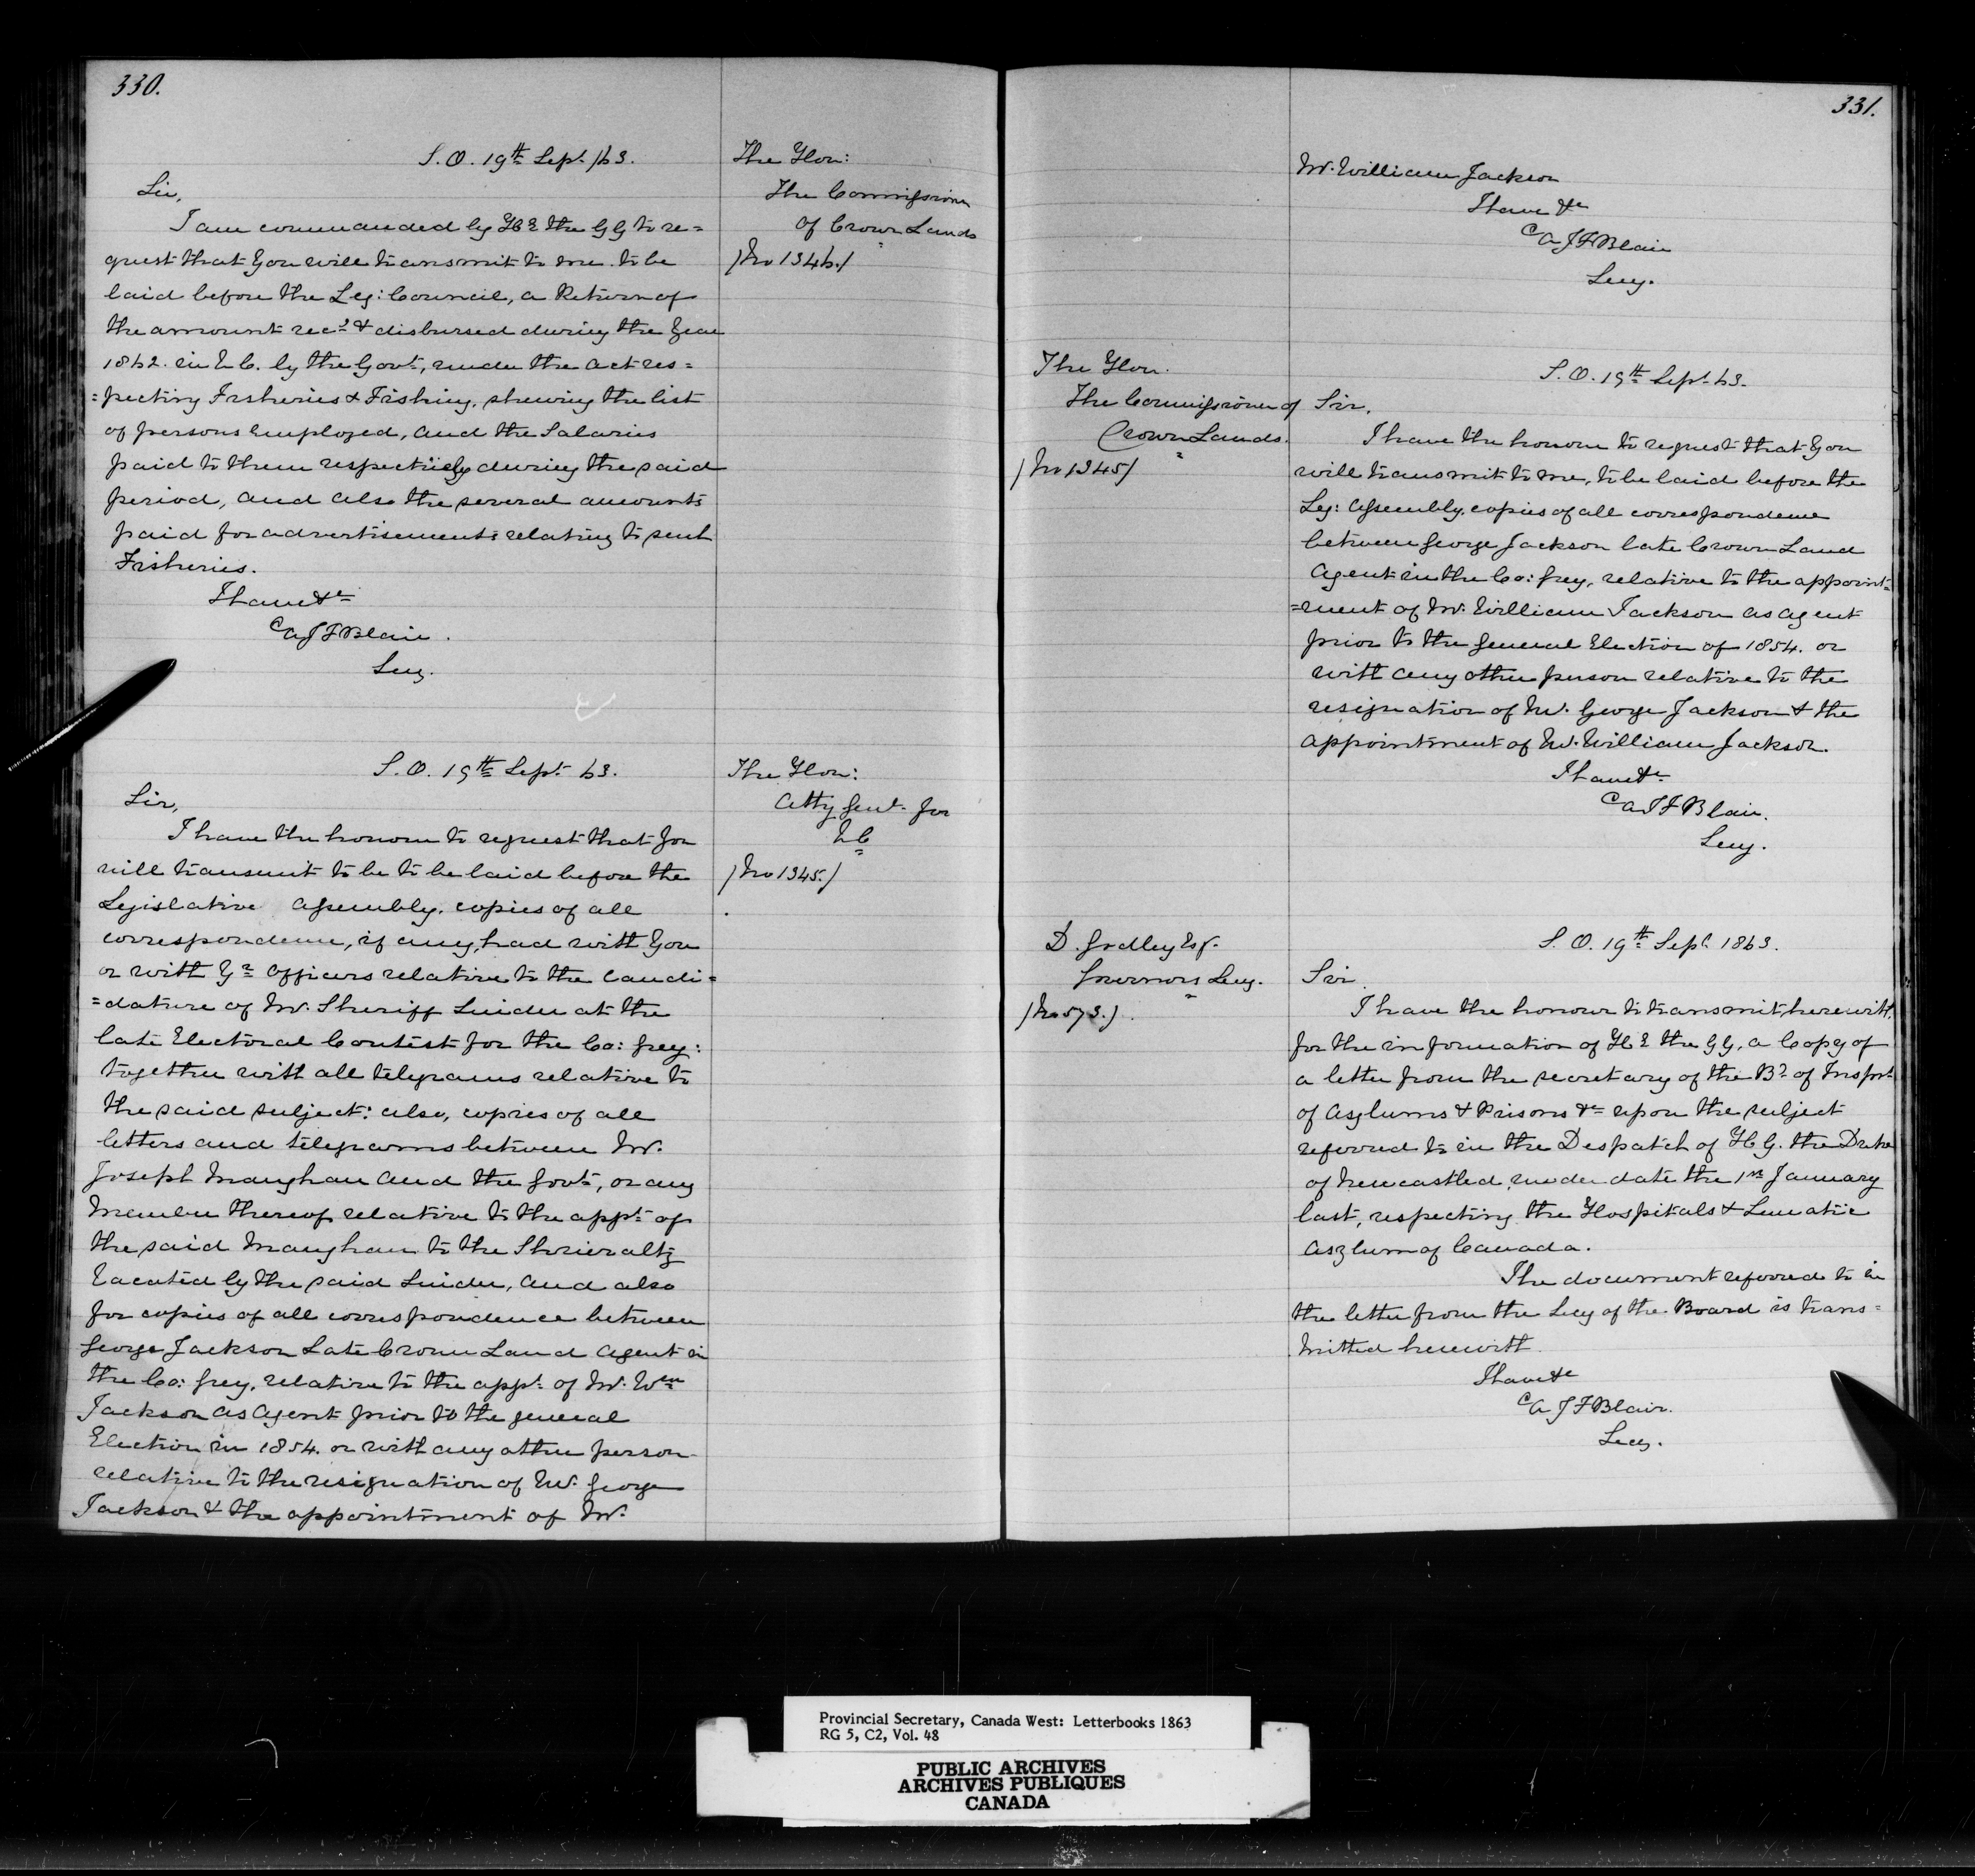 330.
S.O. 19th Sept /63.
The Hon:
The Commissioner
of Crown Lands
/No 1346./
Sir,
I am commanded by H E the G G to re=
quest that you will transmit to me to be
laid before the Leg: Council, a Return of
the amount recd & disbursed during the year
1862. in L C. by the Govt, under the act res=
=pecting Fisheries & Fishing, shewing the list
of persons employed, and the Salaries
paid to them respectively during the said
period, and also the several amounts
paid for advertisements relating to such
Fisheries.
I have &c
A J F Blair.
Secy.
S.O. 19th Sept 63.
The Hon:
Atty Genl. for
/No 1345./
Sir,
I have the honour to request that you
will transmit to be to be laid before the
Legislative Assembly, copies of all
correspondence, if any, had with you
or with Yr Officers relative to the candi=
=dature of Mr. Sheriff Snider at the
late Electoral Contest for the Co: Grey:
together with all telegrams relative to
the said subject: also, copies of all
letters and telegrams between Mr.
Joseph Maughan and the Govt, or any
Member thereof relative to the appt of
the said Maughan to the Shrievalty
vacated by the said Snider, and also
for copies of all correspondence between
George Jackson Late Crown Land Agent in
the Co: Grey, relative to the appt of Mr. Wm
Jackson as agent prior to the general
Election in 1854. or with any other person
relative to the resignation of Mr. George
Jackson & the appointment of Mr.
331.
Mr. William Jackson
I have &c
A J F Blair
Secy.
The Hon.
The Commissioner of
Crown Lands.
/No 1345/
S.O. 19th Sept 63.
Sir,
I have the honour to request that you
will transmit to me, to be laid before the
Leg: Assembly, copies of all correspondence
between George Jackson late Crown Land
Agent in the Co: Grey, relative to the appoint=
=ment of Mr. William Jackson as agent
prior to the general Election of 1854. or
with any other person relative to the
resignation of Mr. George Jackson & the
appointment of Mr. William Jackson.
I have &c
A J F Blair.
Secy.
D. Godley Esq.
Governors Secy.
/No 573./
S.O. 19th Sept 1863.
Sir
I have the honour to transmit herewith,
for the information of H E the G G, a Copy of
a letter from the secretary of the Bd of Insprs
of Asylums & Prisons &c upon the subject
referred to in the Despatch of H G. the Duke
of Newcastled, under date the 1st January
last, respecting the Hospitals & Lunatic
Asylum of Canada.
The document referred to in
the letter from the Secy of the Board is trans=
mitted herewith
I have &c
A J F Blair.
Secy.
Provincial Secretary, Canada West: Letterbooks 1863
RG 5, C2, Vol. 48
PUBLIC ARCHIVES
ARCHIVES PUBLIQUES
CANADA